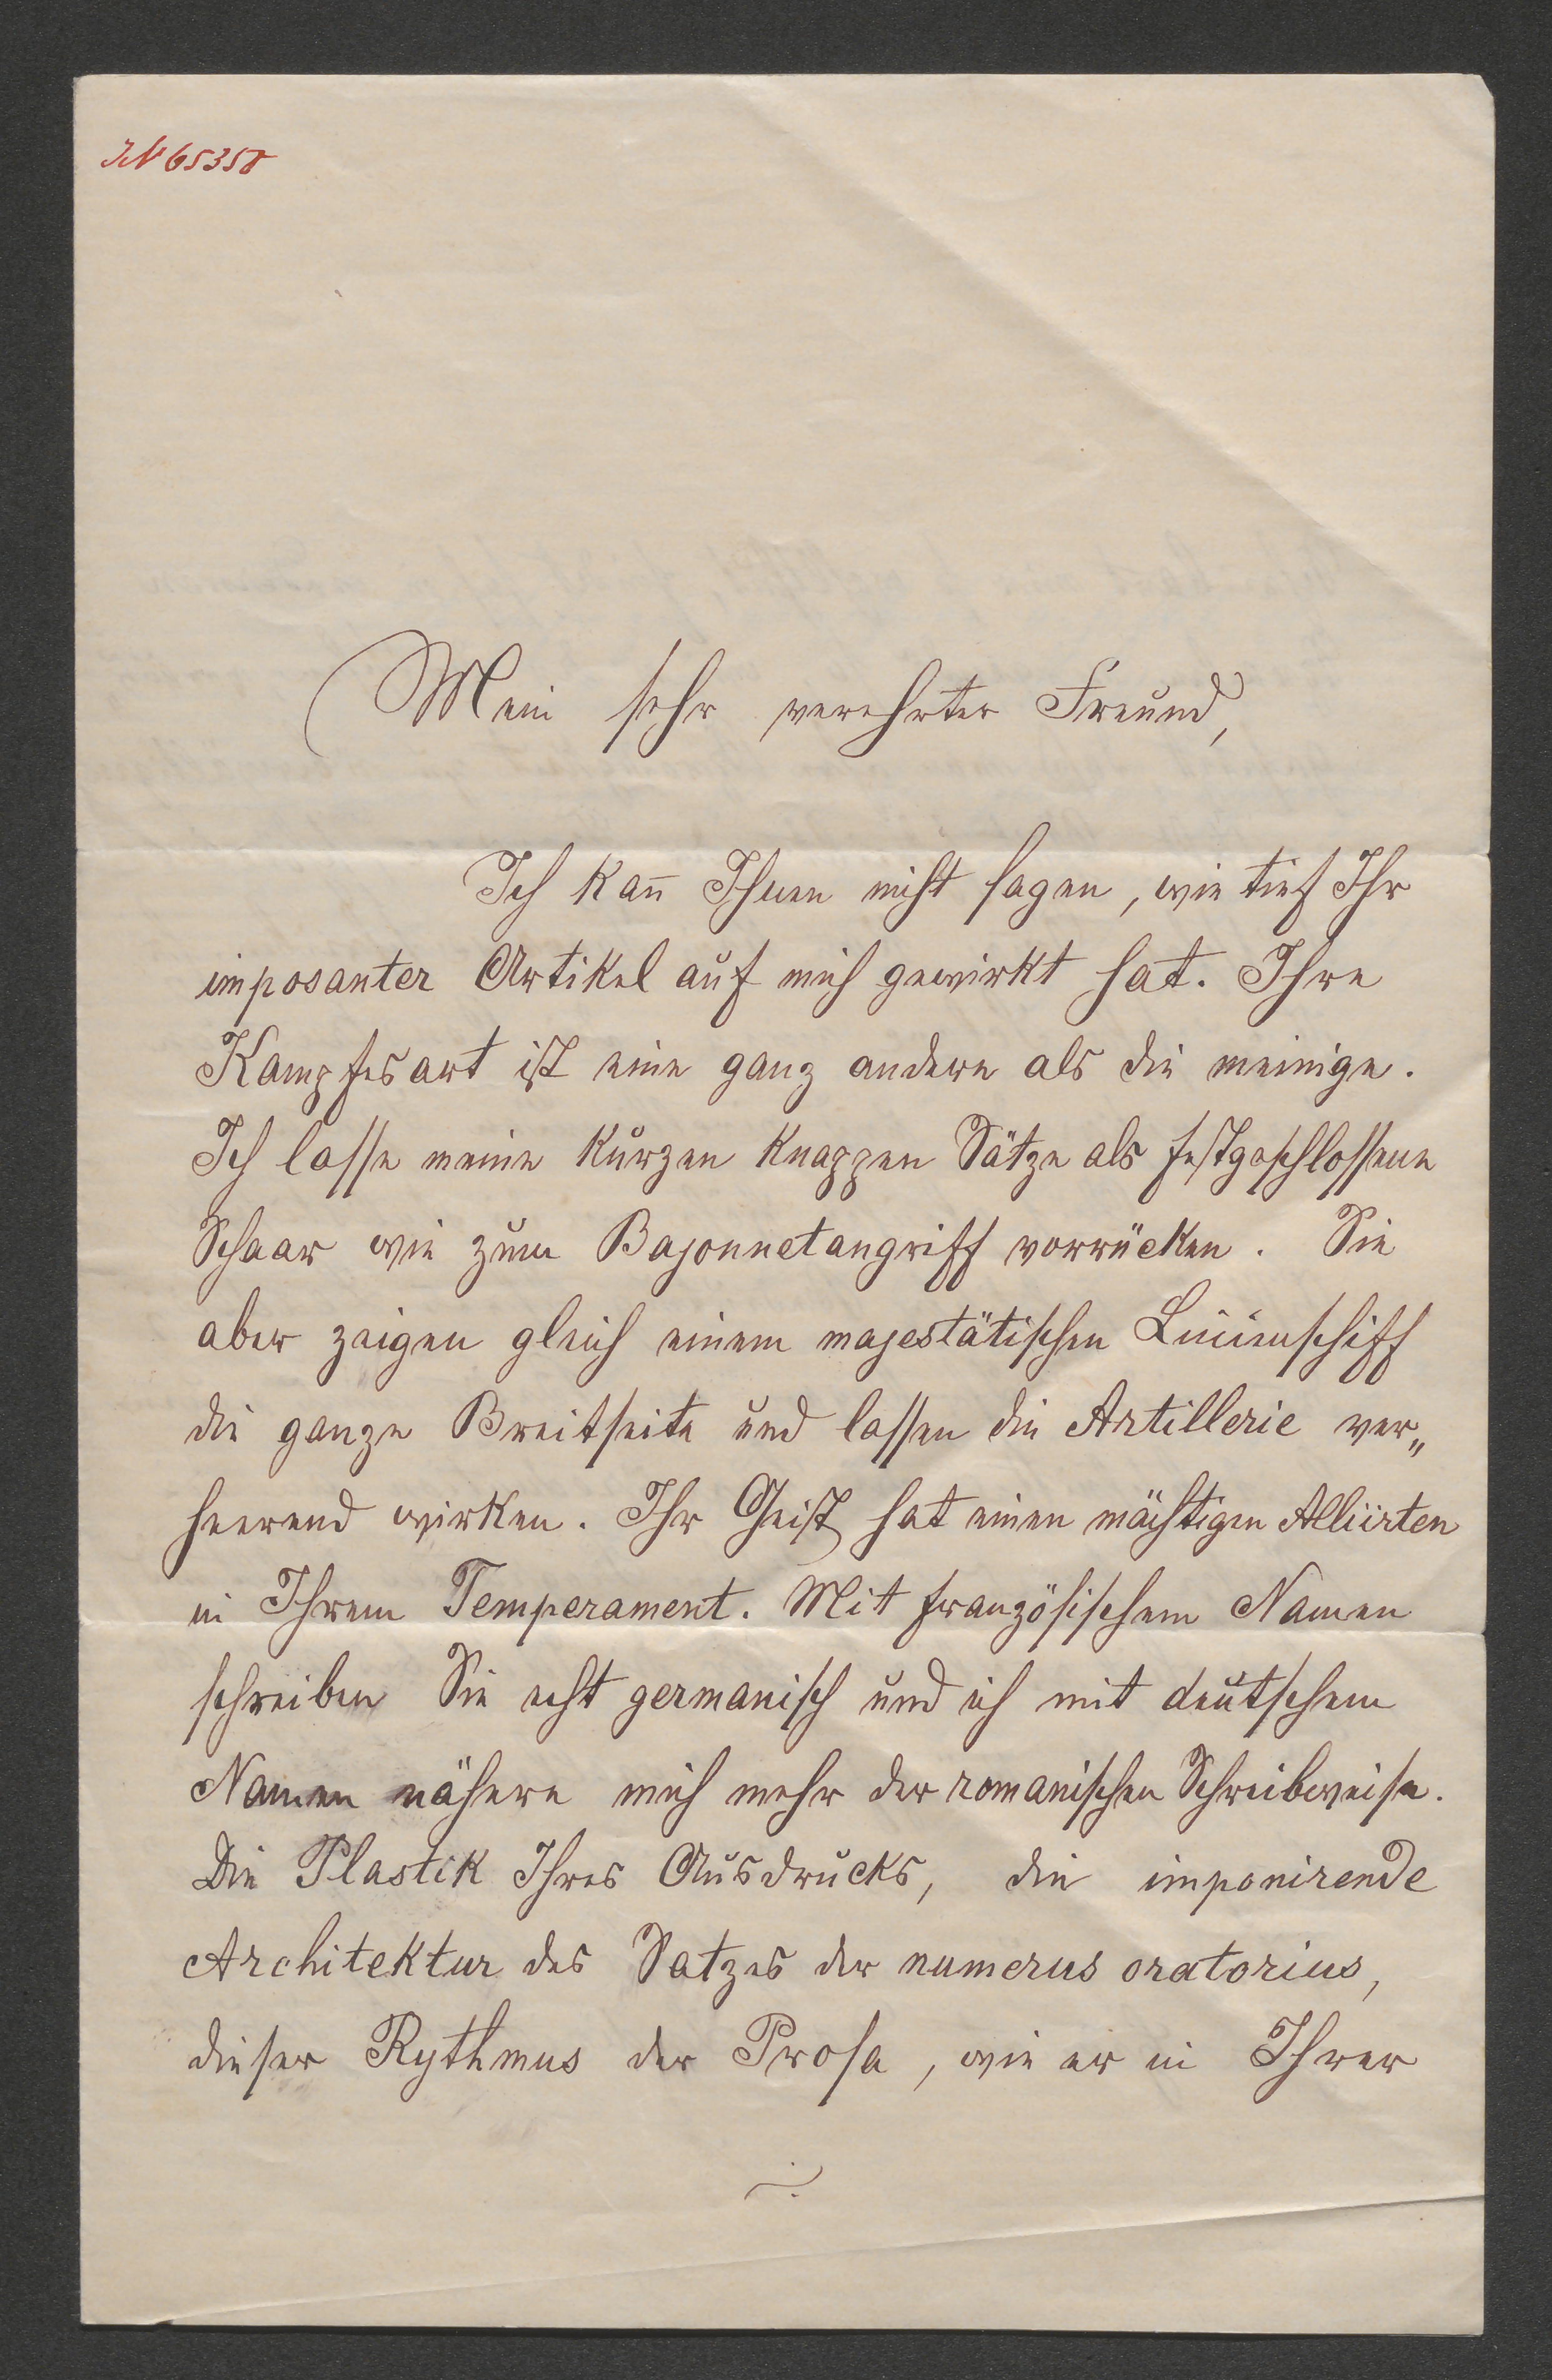 JN 65358
Mein sehr verehrter Freund,
Ich kan̄ Ihnen nicht sagen, wie tief Ihr
imposanter Artikel auf mich gewirkt hat. Ihre
Kampfesart ist eine ganz andere als die meinige.
Ich lasse meine kurzen knappen Sätze als festgeschlossene
Schaar wie zum Bajonnetangriff vorrücken. Sie
aber zeigen gleich einem majestätischen Linienschiff
die ganze Breitseite und lassen die Artillerie ver„
heerend wirken. Ihr Geist hat einen mächtigen Alliirten
in Ihrem Temperament. Mit französischem Namen
schreiben Sie echt germanisch und ich mit deutschem
Namen nähere mich mehr der romanischen Schreibweise.
Die Plastik Ihres Ausdrucks, die imponirende
Architektur des Satzes der numerus oratorius,
dieser Rythmus der Prosa, wie er in Ihrer